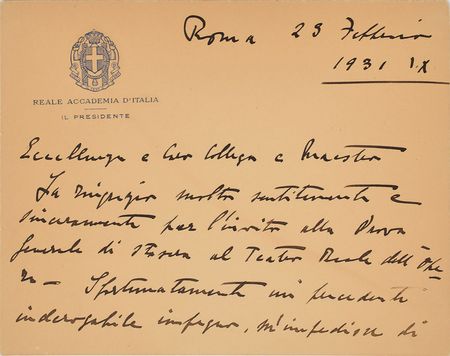 Roma 23 Febbraio
1931 IX
REALE ACCADEMIA D'ITALIA
IL PRESIDENTE
Eccellenza e Caro Collega e Maestro
La ringrazio molto sentitamente e
sinceramente per l'invito alla Prova
Generale di stasera al Teatro Reale dell'Ope-
ra – Sfortunatamente un precedente
inderogabile impegno, m'impedisce di